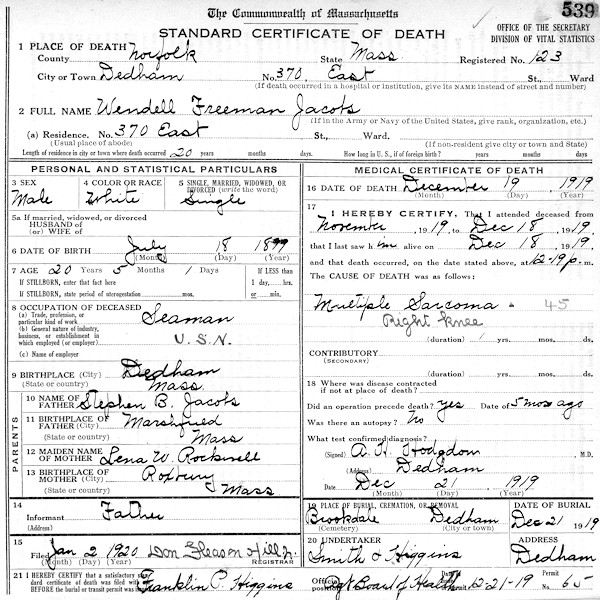 539
The Commonwealth of Massachusetts
STANDARD CERTIFICATE OF DEATH
OFFICE OF THE SECRETARY
DIVISION OF VITAL STATISTICS
1 PLACE OF DEATH
County Norfolk State Mass Registered No. 123
City or Town Dedham No. 370 East St., Ward
(If death occurred in a hospital or institution, give its NAME instead of street and number)
2 FULL NAME Wendell Freeman Jacobs
(If in the Army or Navy of the United States, give rank, organization, etc.)
(a) Residence. No. 370 East St., Ward.
(Usual place of abode) (If non-resident give city or town and State)
Length of residence in city or town where death occurred 20 years months days. How long in U. S., if of foreign birth? years months days.
PERSONAL AND STATISTICAL PARTICULARS
3 SEX 4 COLOR OR RACE 5 SINGLE, MARRIED, WIDOWED, OR
DIVORCED (write the word)
Male White Single
5a If married, widowed, or divorced
HUSBAND of
(or) WIFE of
6 DATE OF BIRTH July 18 1899
(Month) (Day) (Year)
7 AGE 20 Years 5 Months 1 Days If LESS than
1 day, hrs.
or min.
If STILLBORN, enter that fact here
If STILLBORN, state period of uterogestation mos.
8 OCCUPATION OF DECEASED
(a) Trade, profession, or
particular kind of work Seaman
(b) General nature of industry,
business, or establishment in
which employed (or employer) U.S.N.
(c) Name of employer
9 BIRTHPLACE (City) Dedham
(State or country) Mass
PARENTS
10 NAME OF
FATHER Stephen B. Jacobs
11 BIRTHPLACE OF
FATHER (City) Marshfield
(State or country) Mass
12 MAIDEN NAME
OF MOTHER Lena W. Rockwell
13 BIRTHPLACE OF
MOTHER (City) Roxbury
(State or country) Mass
14
Informant Father
(Address)
15
Filed Jan 2 1920
REGISTRAR
MEDICAL CERTIFICATE OF DEATH
16 DATE OF DEATH December 19 1919
(Month) (Day) (Year)
17
I HEREBY CERTIFY, That I attended deceased from
November, 1919, to Dec 18, 1919,
that I last saw him alive on Dec 18, 1919,
and that death occurred, on the date stated above, at 12-19 p. m.
The CAUSE OF DEATH was as follows:
Multiple Sarcoma - 45
Right knee
(duration) yrs. mos. ds.
CONTRIBUTORY
(SECONDARY)
(duration) yrs. mos. ds.
18 Where was disease contracted
if not at place of death?
Did an operation precede death? yes Date of 5 mos ago
Was there an autopsy? No
What test confirmed diagnosis?
(Signed) A. H. Hodgdon, M.D.
(Address) Dedham
Date Dec 21 1919
(Month) (Day) (Year)
19 PLACE OF BURIAL, CREMATION, OR REMOVAL DATE OF BURIAL
Brookdale Dedham Dec 21 1919
(Cemetery) (City or town)
20 UNDERTAKER ADDRESS
Smith & Higgins Dedham
21 I HEREBY CERTIFY that a satisfactory
standard certificate of death was filed with
BEFORE the burial or transit permit was Franklin P. Higgins
Official position Agt Board of Health 12-21-19 Permit No. 65